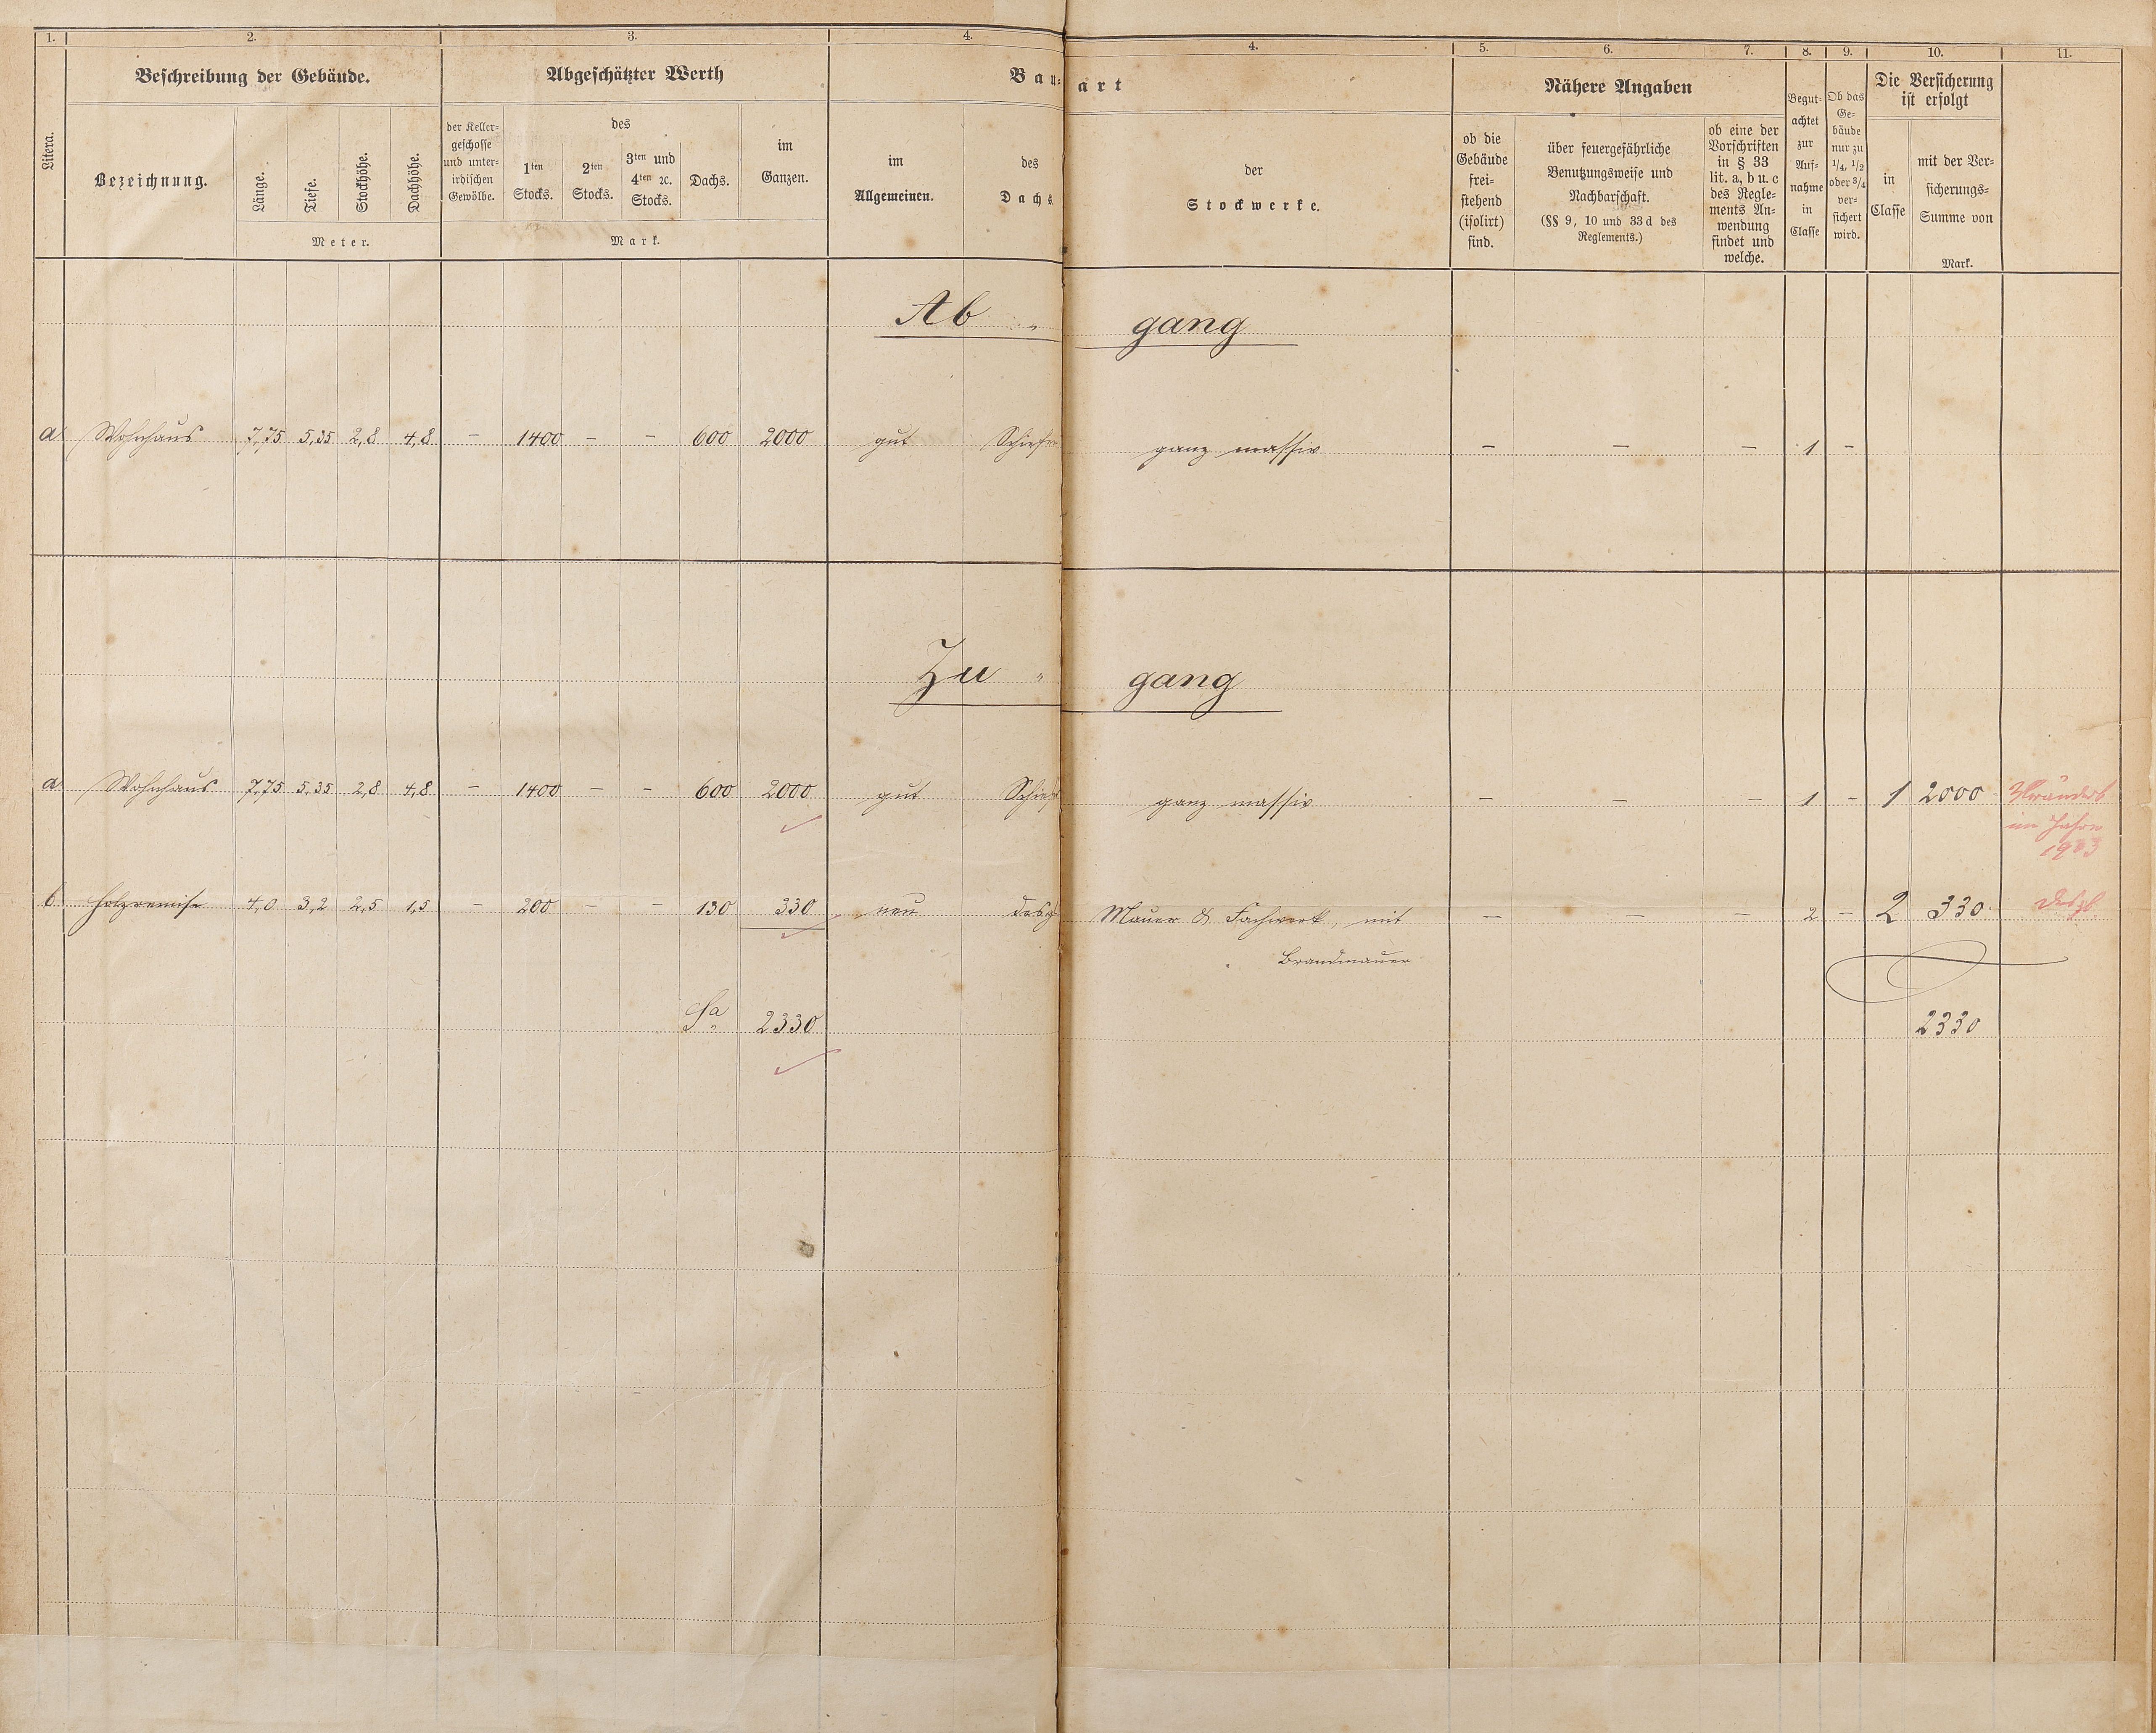 1. 2. 3. 4. 4. 5. 6. 7. 8. 9. 10. 11.
Litera.
Beschreibung der Gebäude.
Bezeichnung.
Länge.
Tiefe.
Stockhöhe.
Dachhöhe.
Meter.
Abgeschätzter Werth
der Keller-
geschosse
und unter-
irdischen
Gewölbe.
des
1ten
Stocks.
2ten
Stocks.
3ten und
4ten ꝛc.
Stocks.
Dachs.
im
Ganzen.
Mark.
Bau-
art
im
Allgemeinen.
des
Dachs
der
Stockwerke.
Nähere Angaben
ob die
Gebäude
frei-
stehend
(isolirt)
sind.
über feuergefährliche
Benutzungsweise und
Nachbarschaft.
(§§ 9, 10 und 33 d des
Reglements.)
ob eine der
Vorschriften
in § 33
lit. a, b u. c
des Regle-
ments An-
wendung
findet und
welche.
Begut-
achtet
zur
Auf-
nahme
in
Classe
Ob das
Ge-
bäude
nur zu
1/4, 1/2
oder 3/4
ver-
sichert
wird.
Die Versicherung
ist erfolgt
in
Classe
mit der Ver-
sicherungs-
Summe von
Mark.
Ab " gang
a. Wohnhaus 7,75 5,35 2,8 4,8 – 1400 – – 600 2000 gut Schiefer ganz massiv – – – 1 –
Zu " gang
a. Wohnhaus 7,75 5,35 2,8 4,8 – 1400 – – 600 2000 gut Schief ganz massiv – – – 1 – 1 2000 Verändert
im Jahre
1903
b. Holzremise 4,0 3,2 2,5 1,5 – 200 – – 130 330 neu desgl Mauer & Fachwerk, mit – – – 2 – 2 330 desgl.
Brandmauer
Sa 2330 2330